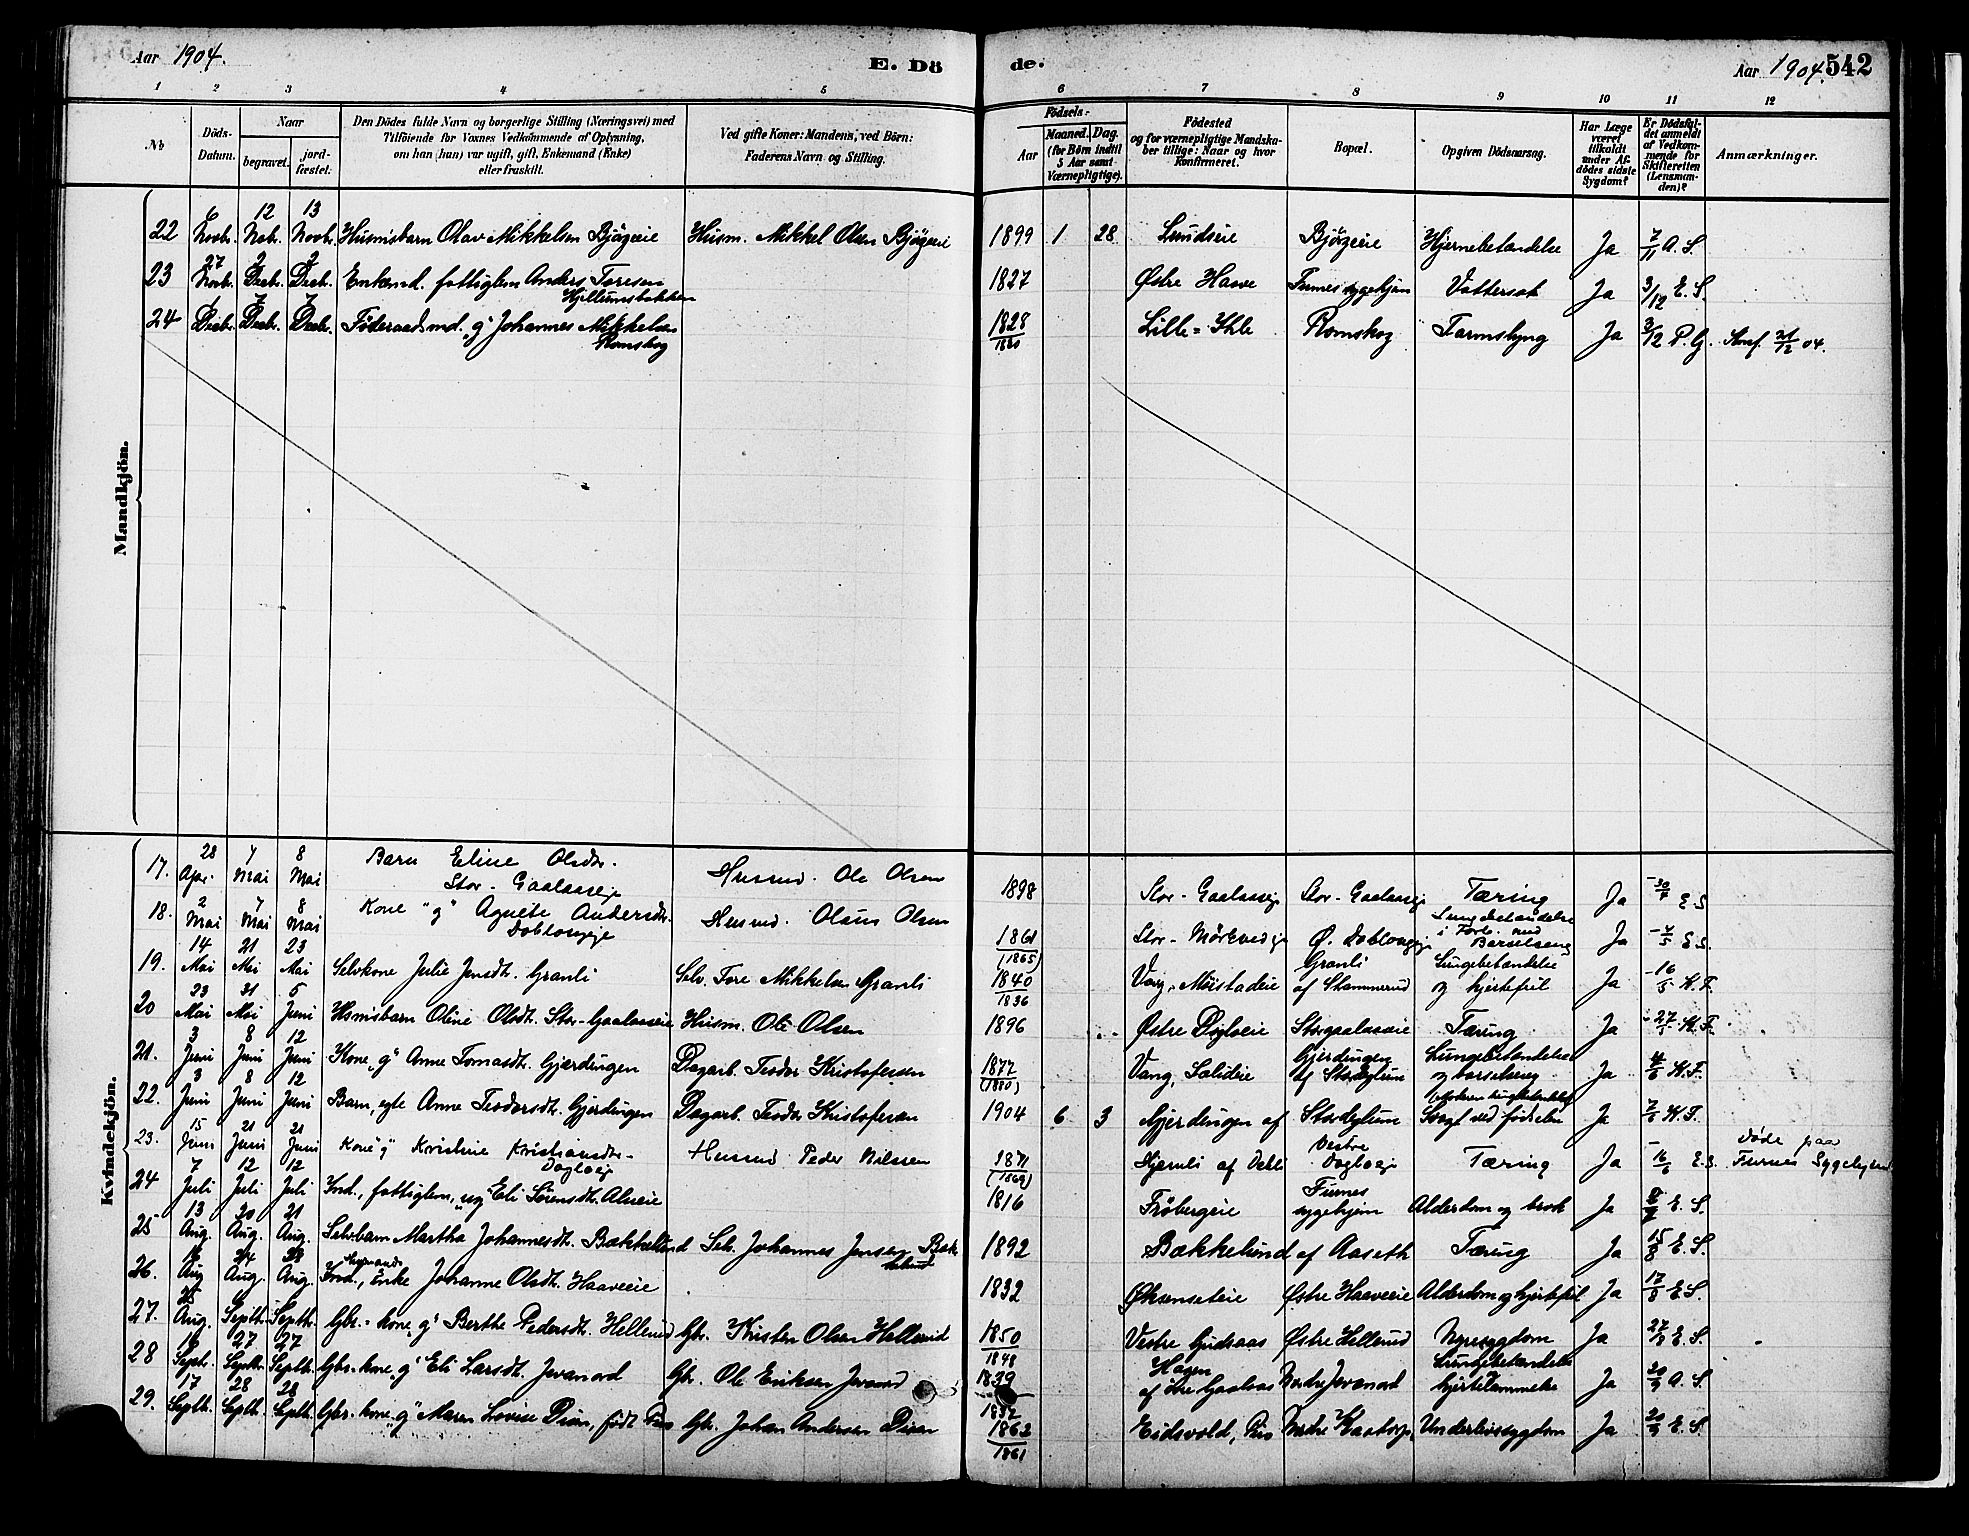 Aar 1904.
E. Dö
de.
Aar 1904. 542
1 2 3 4 5 6 7 8 9 10 11 12
No
Döds-Datum.
Naar
begravet.
jord-fæstet.
Den Dödes fulde Navn og borgerlige Stilling (Næringsvei) med
Tilföiende for Voxnes Vedkommende af Oplysning,
om han (hun) var ugift, gift, Enkemand (Enke)
eller fraskilt.
Ved gifte Koner: Mandens, ved Börn:
Faderens Navn og Stilling.
Födsels-
Aar
Maaned. Dag.
(for Börn indtil
5 Aar samt
Værnepligtige).
Födested
og for værnepligtige Mandska-
ber tillige: Naar og hvor
Konfirmeret.
Bopæl.
Opgiven Dödsaarsag.
Har Læge
været
tilkaldt
under Af-
dödes sidste
Sygdom?
Er Dödsfal-
det anmeldt
af Vedkom-
mende for
Skifteretten
(Lensman-
den)?
Anmærkninger.
Mandkjön.
22 6 Novb. 12 Nob. 13 Novb. Husmsbarn Olav Mikkelsen Bjørgeie Husm. Mikkel Olsen Bjørgeeie 1899 1 28 Lundseie Bjørgeeie Hjernebetændelse Ja 7/11 A. S.
23 27 Novb. 2 Decb. 2 Decb. Enkemd. fattiglem Anders Toresen Hjellumstokken 1827 Østre Haave Furnes sygehjem Vattersot Ja 3/12 E. S.
24 1 Decb. 7 Decb. 7 Decb. Føderaadsmd. "g" Johannes Mikkelsen Romskog 1828 Lille-Ihle Romskog Tarmslyng Ja 3/12 P. G. 21/12 04.
Kvindekjön.
17. 28 Apr. 7 Mai 8 Mai Barn Eline Olsdtr. Stor-Gaalaaseje Husmd. Ole Olsen 1898 Stor-Gaalaaseje Stor-Gaalaaseje Tæring Ja 30/4 E S
18. 2 Mai 7 Mai 8 Mai Kone "g" Agnete Andersdtr. Doblougeje Husmd. Olaus Olsen 1861 (1865) Stor-Mørkvedeje Ø. Doblougeje Lungebetændelse i Forb. med Barselseng Ja 4/5 E S.
19. 14 Mai 21 Mai 23 Mai Selvkone Julie Jensdt. Granli Selv. Tore Mikkelsen Granli 1840 1836 Vang, Mustadeie Granli af Stammerud Lungebetændelse og hjertefeil Ja 16/5 K. F.
20 23 Mai 31 Mai 5 Juni Husmsbarn Oline Olsdt. Stor-Gaalaaseie Husm. Ole Olsen 1896 Østre Dogloeie Storgaalaaseie Tæring Ja 27/5 K. F.
21. 3 Juni 8 Juni 12 Juni Kone "g" Anne Tomasdt. Gjerdingen Dagarb. Teodor Kristofersen 1877 (1880) Vang, Gjerdingen af Lungebetændelse og barselseng Ja 4/6 K. F.
22. 3 Juni 8 Juni 12 Juni Barn, egte Anne Teodorsdt. Gjerdingen Dagarb. Teodor Kristofersen 1904 6 3 Gjerdingen af Svagt ved fødselen Ja 7/6 K. F.
23. 15 Juni 21 Juni 21 Juni Kone "g" Kristine Kristiansdtr. Dogloeje Husmd Peder Nilssen 1871 (1869) af Vestre Dogloeje Tæring Ja 16/6 E. S. Døde paa Furnes Sygehjem
24 7 Juli 12 Juli 12 Juli Ind., fattiglem, "ug" Eli Sørensdt. Alueie 1816 Frøbergeie Furnes sygehjem Alderdom og brok Ja E. S.
25 13 Aug. 20 Aug. 21 Aug. Selvbarn Martha Johannesdt. Bækkelund Selv. Johannes Jensen Bækkelund 1892 Bækkelund af Aaseth Tæring Ja 15/8 E. S.
26. 16 Aug 24 Aug. Aug. Ind., Enke Johanne Olsdt. Haaveeie 1832 Øksenseteie Østre Haaveeie Alderdom og hjertefeil Ja 17/8 E S.
27. 25 Aug. Septb. Septb. Gbr.-kone "g" Berthe Pedersdt. Hellerud Gbr. Kristen Olsen Hellerud 1850 1848 Vestre Gudsaas Østre Hellerud Nyresygdom Ja E. S.
28 16 Septb. 27 Septb. 27 Septb. Gbr.-kone "g" Eli Larsdt. Jevanord Gbr. Ole Eriksen Jevanord 1839 Hagen af Gaalaas Nordre Jevanord Lungebetændelse hjertelammelse Ja 20/9 A. S.
29. 17 Septb. 28 Septb. 28 Septb. Gbr.-kone "g" Maren Lovise født Gbr. Johan Andersen 1862 1861 Eidsvold, Underlivssygdom Ja 20/9 E. S.